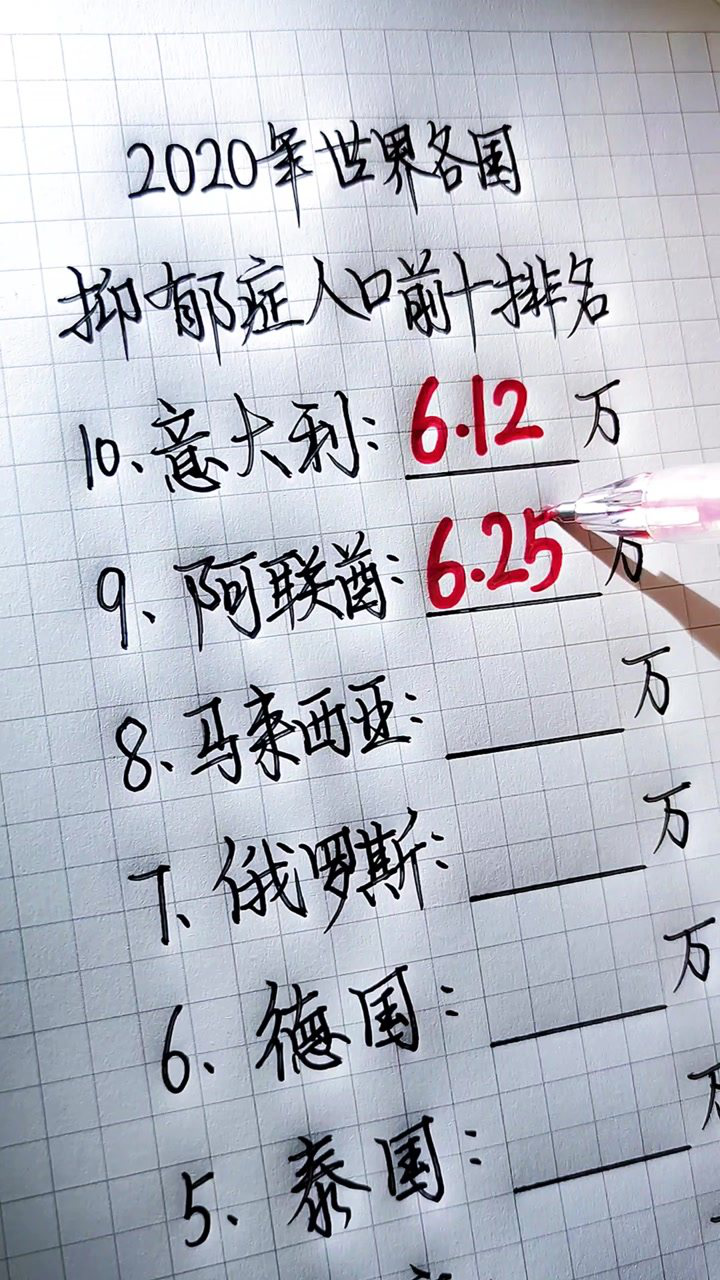 2020年世界各国
抑郁症人口前十排名
10、意大利: 6.12 万
9、阿联酋: 6.25 万
8、马来西亚: 万
7、俄罗斯: 万
6、德国: 万
5、泰国: 万